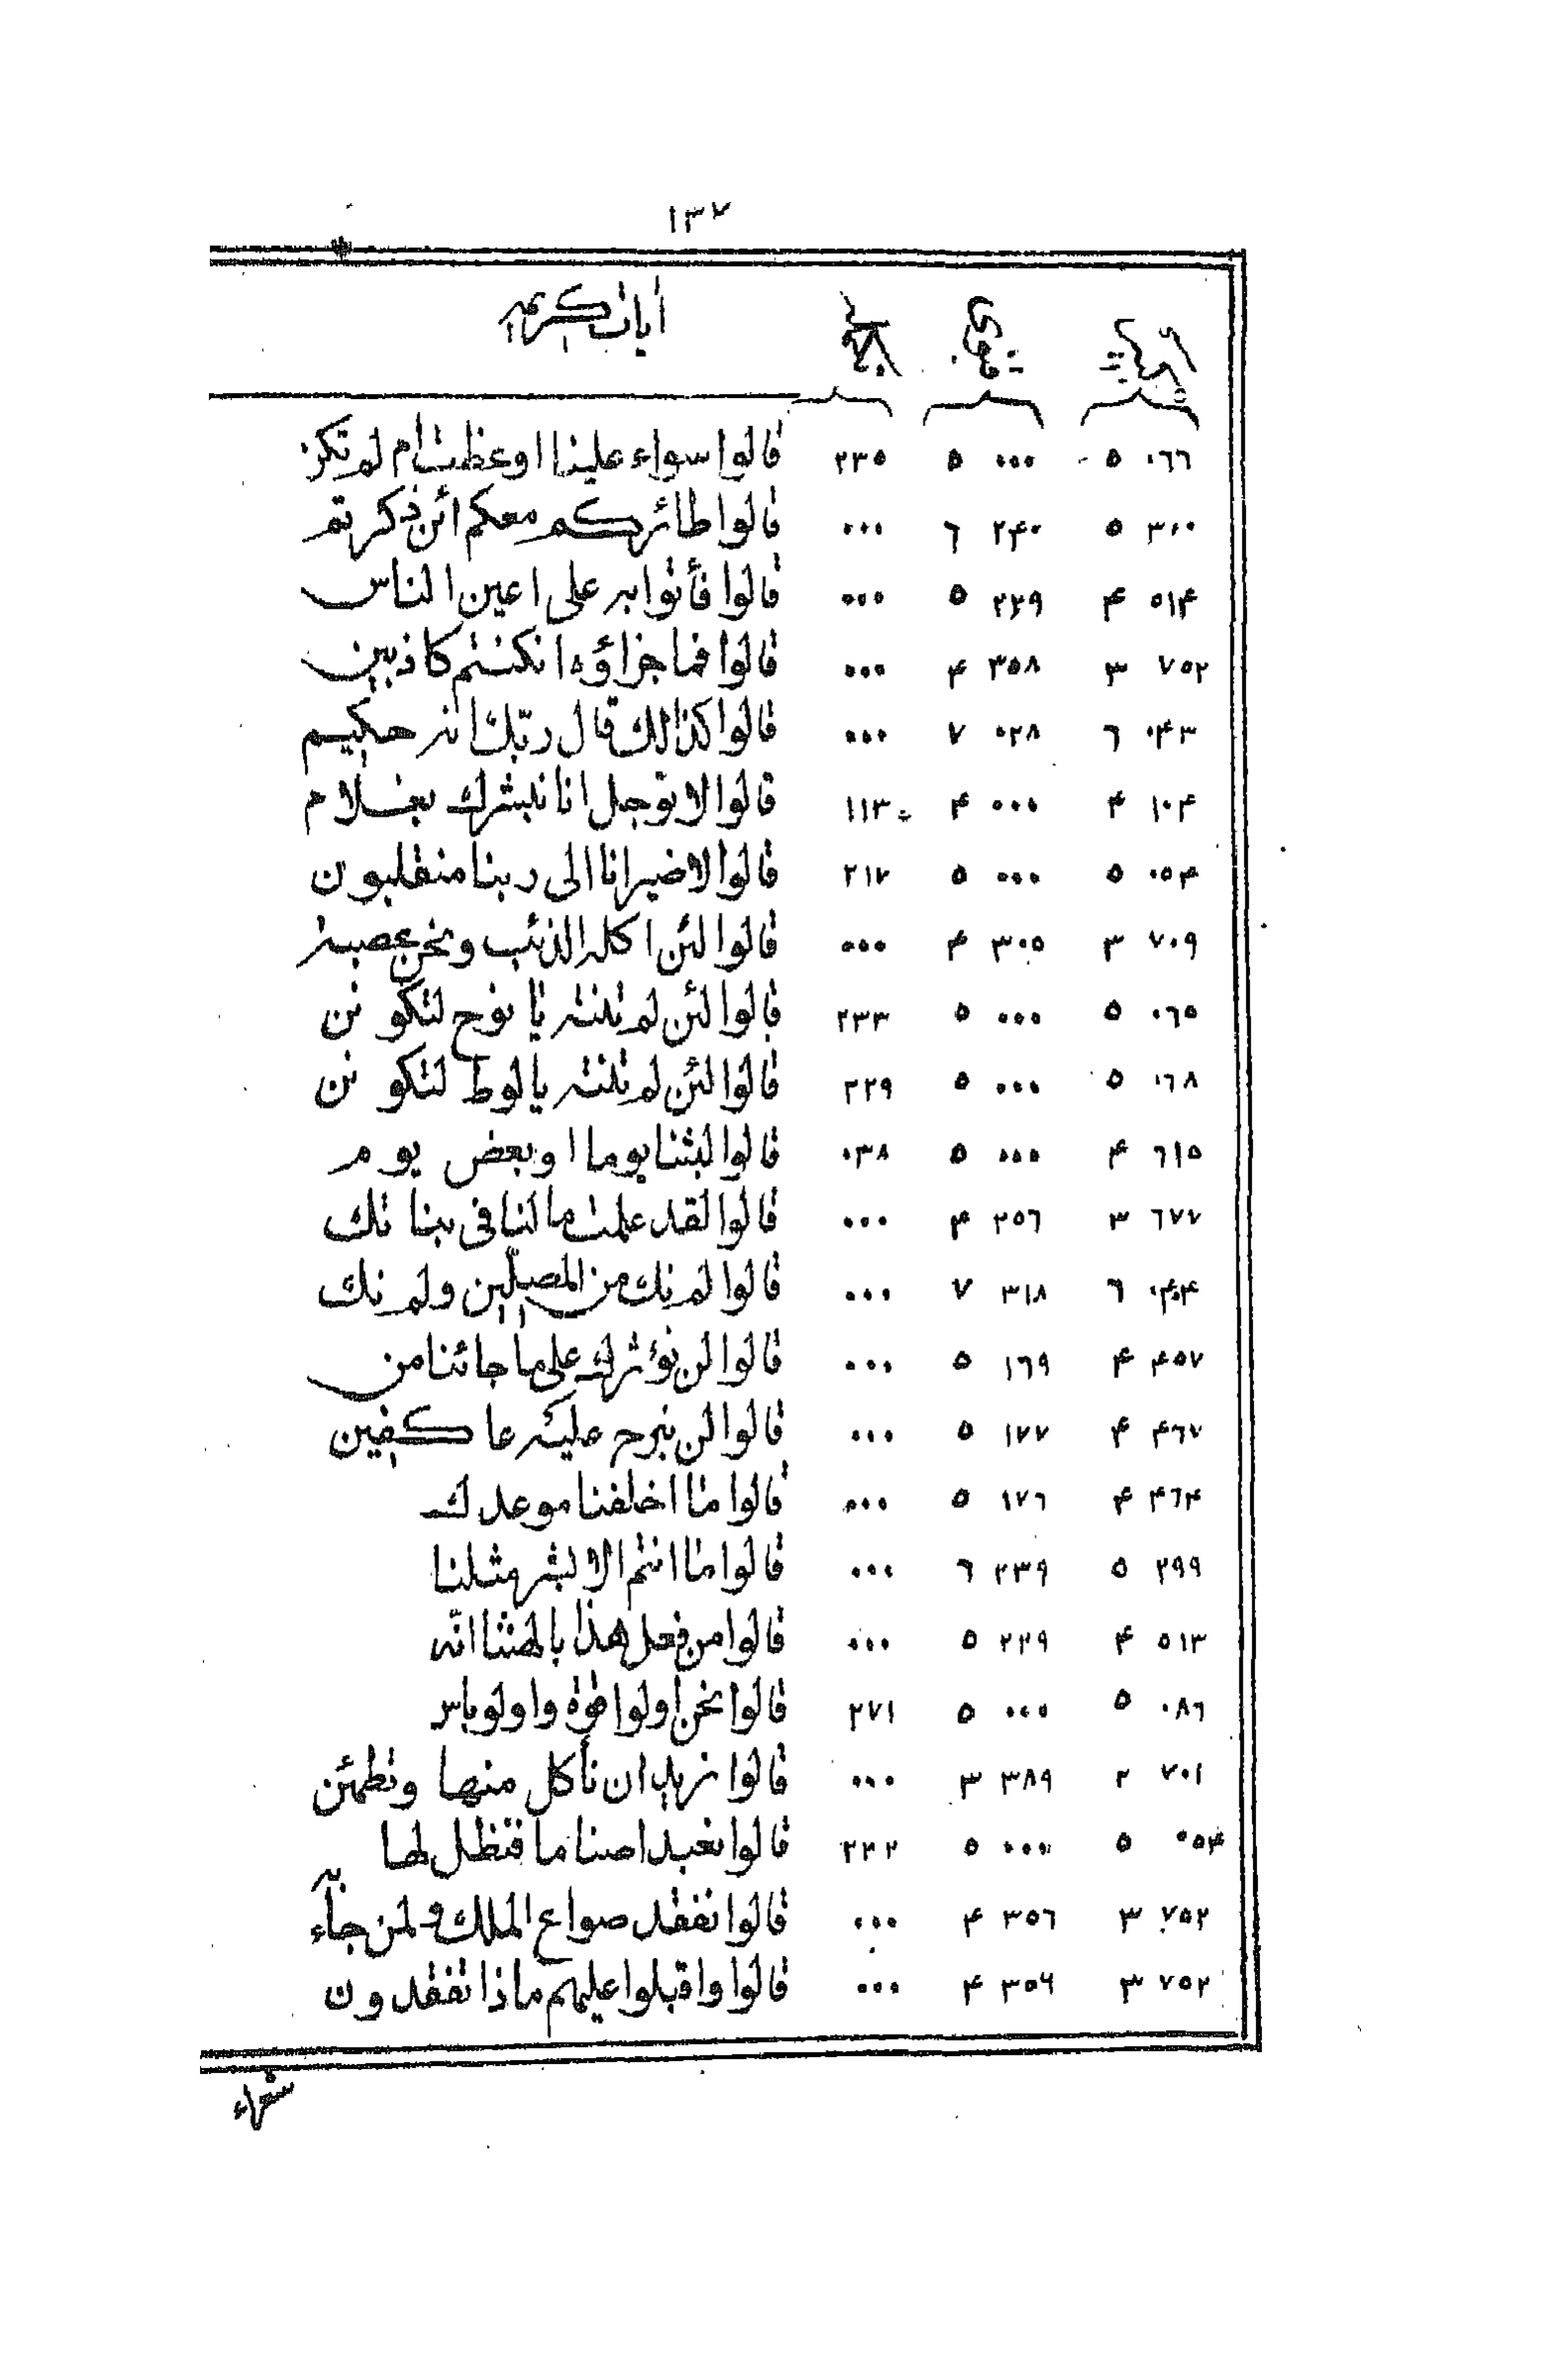 ١٣٧
آيات كريمه
٠٦٦ ٥ ٠٠٠ ٥ ٢٣٥ قالوا سواء علينا اوعظت ام لم تكن
٣٠٠ ٥ ٢٤٠ ٦ ٠٠٠ قالوا طائركم معكم أئن ذكرتم
٥١۴ ۴ ٢٢٩ ٥ ٠٠٠ قالوا فأتوا به على اعين الناس
٧٥٢ ٣ ٣٥٨ ۴ ٠٠٠ قالوا فما جزاؤه ان كنتم كاذبين
٠۴٣ ٦ ٠٢٨ ٧ ٠٠٠ قالوا كذالك قال ربّك انه حكيم
١٠۴ ۴ ٠٠٠ ۴ ١١٣ قالوا لا توجل انا نبشرك بغلام
٠٥۴ ٥ ٠٠٠ ٥ ٢١٧ قالوا لا ضير انا الى ربنا منقلبون
٧٠٩ ٣ ٣٠٥ ۴ ٠٠٠ قالوا لئن اكله الذئب ونحن عصبة
٠٦٥ ٥ ٠٠٠ ٥ ٢٣٣ قالوا لئن لم تنته يا نوح لتكونن
٠٦٨ ٥ ٠٠٠ ٥ ٢٢٩ قالوا لئن لم تنته يا لوط لتكونن
٦١٥ ۴ ٠٠٠ ٥ ٠٣٨ قالوا لبثنا يوما او بعض يوم
٦٧٧ ٣ ٢٥٦ ۴ ٠٠٠ قالوا لقد علمت ما لنا فى بناتك
٠۴۴ ٦ ٣١٨ ٧ ٠٠٠ قالوا لم نك من المصلّين ولم نك
۴٥٧ ۴ ١٦٩ ٥ ٠٠٠ قالوا لن نؤثرك على ما جائنا من
۴٦٧ ۴ ١٧٧ ٥ ٠٠٠ قالوا لن نبرح عليه عاكفين
۴٦۴ ۴ ١٧٦ ٥ ٠٠٠ قالوا ما اخلفنا موعدك
٢٩٩ ٥ ٢٣٩ ٦ ٠٠٠ قالوا ما انتم الا بشر مثلنا
٥١٣ ۴ ٢٢٩ ٥ ٠٠٠ قالوا من فعل هذا بالهتنا انّه
٠٨٦ ٥ ٠٠٠ ٥ ٢٧١ قالوا نحن اولوا قوة واولوباس
٧٠١ ٢ ٣٨٩ ٣ ٠٠٠ قالوا نريد ان نأكل منها وتطمئن
٠٥۴ ٥ ٠٠٠ ٥ ٢٢٢ قالوا نعبد اصناما فنظل لها
٧٥٢ ٣ ٣٥٦ ۴ ٠٠٠ قالوا نفقد صواع الملك ولمن جآء به
٧٥٢ ٣ ٣٥٦ ۴ ٠٠٠ قالوا واقبلوا عليهم ماذا تفقدون